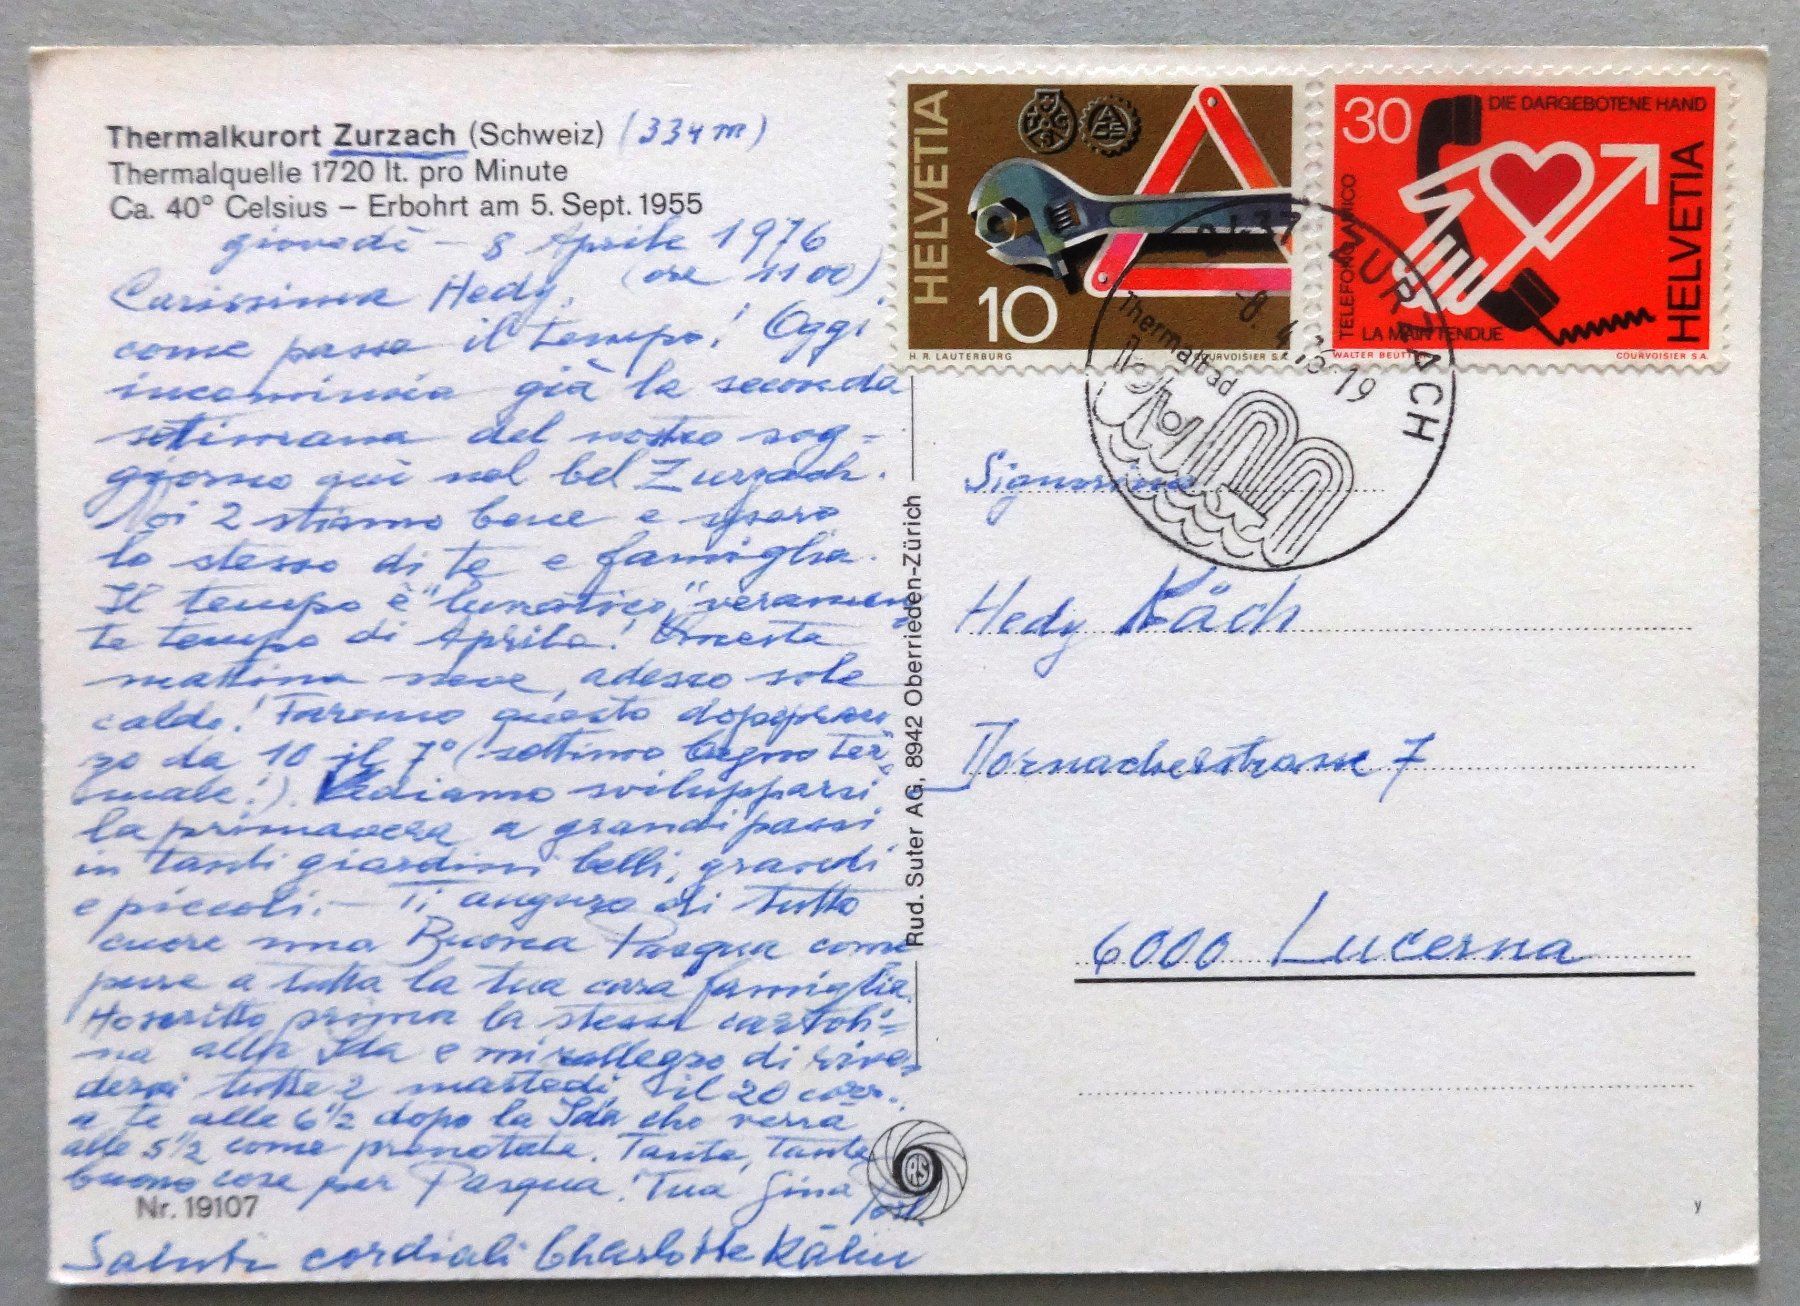 Thermalkurort Zurzach (Schweiz) (334 m)
Thermalquelle 1720 lt. pro Minute
Ca. 40° Celsius – Erbohrt am 5. Sept. 1955
giovedì – 8 Aprile 1976
Carissima Hedy, (ore 11 00)
come passa il tempo! Oggi
incomincia già la seconda
settimana del nostro sog=
giorno quì nel bel Zurzach.
Noi 2 stiamo bene e spero
lo stesso di te e famiglia.
Il tempo è "lunatico," veramen
te tempo di Aprile! Questa
mattina neve, adesso sole
caldo! Faremo questo dopopran
zo da 10 il 7° (settimo bagno ter=
male!). Vediamo svilupparsi
la primavera a grandi passi
in tanti giardini belli, grandi
e piccoli. – Ti auguro di tutto
cuore una Buona Pasqua come
pure a tutta la tua cara famiglia.
Ho scritto prima la stessa cartoli=
na alla Ida e mi rallegro di rive=
dervi tutte 2 martedì il 20 corr.
a te alle 6 1/2 dopo la Ida che verrà
alle 5 1/2 come prenotate. Tante, tante
buone cose per Pasqua! Tua Gina
Nr. 19107
Saluti cordiali Charlotte Kälin
Rud. Suter AG, 8942 Oberrieden-Zürich
RS
HELVETIA
10
H. R. LAUTERBURG
COURVOISIER S.A.
30
DIE DARGEBOTENE HAND
TELEFONO AMICO
LA MAIN TENDUE
HELVETIA
WALTER BEUTTER
COURVOISIER S.A.
8437 ZURZACH
-8. 4. 76-19
Thermalbad
Signorina
Hedy Käch
Dornacherstrasse 7
6000 Lucerna
y